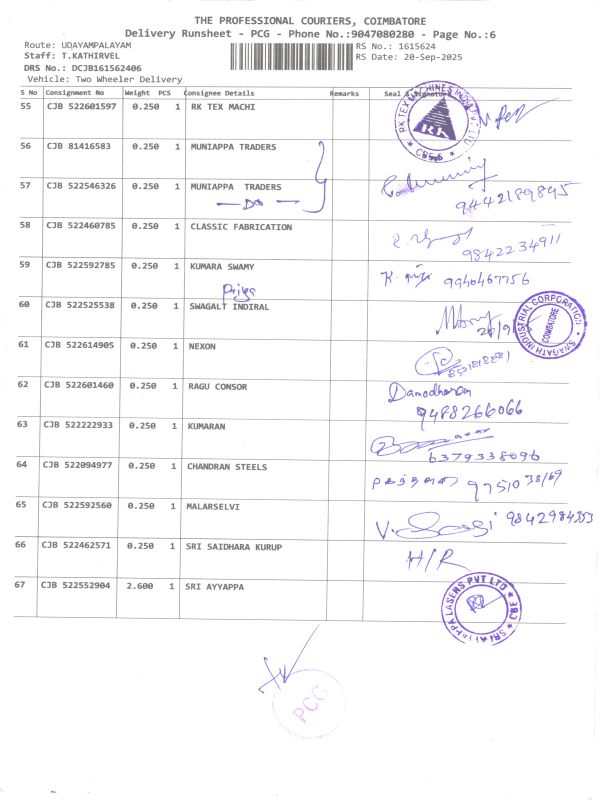 THE PROFESSIONAL COURIERS, COIMBATORE
Delivery Runsheet - PCG - Phone No.:9047080280 - Page No.:6
Route: UDAYAMPALAYAM RS No.: 1615624
Staff: T.KATHIRVEL RS Date: 20-Sep-2025
DRS No.: DCJB161562406
Vehicle: Two Wheeler Delivery
S No Consignment No Weight PCS Consignee Details Remarks Seal & Signature
55 CJB 522601597 0.250 1 RK TEX MACHI
RK TEX MACHINES INDIA PVT. LTD
RK
CBE-6
56 CJB 81416583 0.250 1 MUNIAPPA TRADERS
57 CJB 522546326 0.250 1 MUNIAPPA TRADERS
— Do — 9442189895
58 CJB 522460785 0.250 1 CLASSIC FABRICATION
9842234911
59 CJB 522592785 0.250 1 KUMARA SWAMY 9940467756
Priya
60 CJB 522525538 0.250 1 SWAGALT INDIRAL
SWAGATH INDUSTRIAL CORPORATION
COIMBATORE
61 CJB 522614905 0.250 1 NEXON
62 CJB 522601460 0.250 1 RAGU CONSOR Damodharan
9488266066
63 CJB 522222933 0.250 1 KUMARAN
6379338096
64 CJB 522094977 0.250 1 CHANDRAN STEELS 97510 38169
65 CJB 522592560 0.250 1 MALARSELVI 9842984353
66 CJB 522462571 0.250 1 SRI SAIDHARA KURUP H/R
67 CJB 522552904 2.600 1 SRI AYYAPPA
SRI AYYAPPA LASERS PVT LTD
PCG